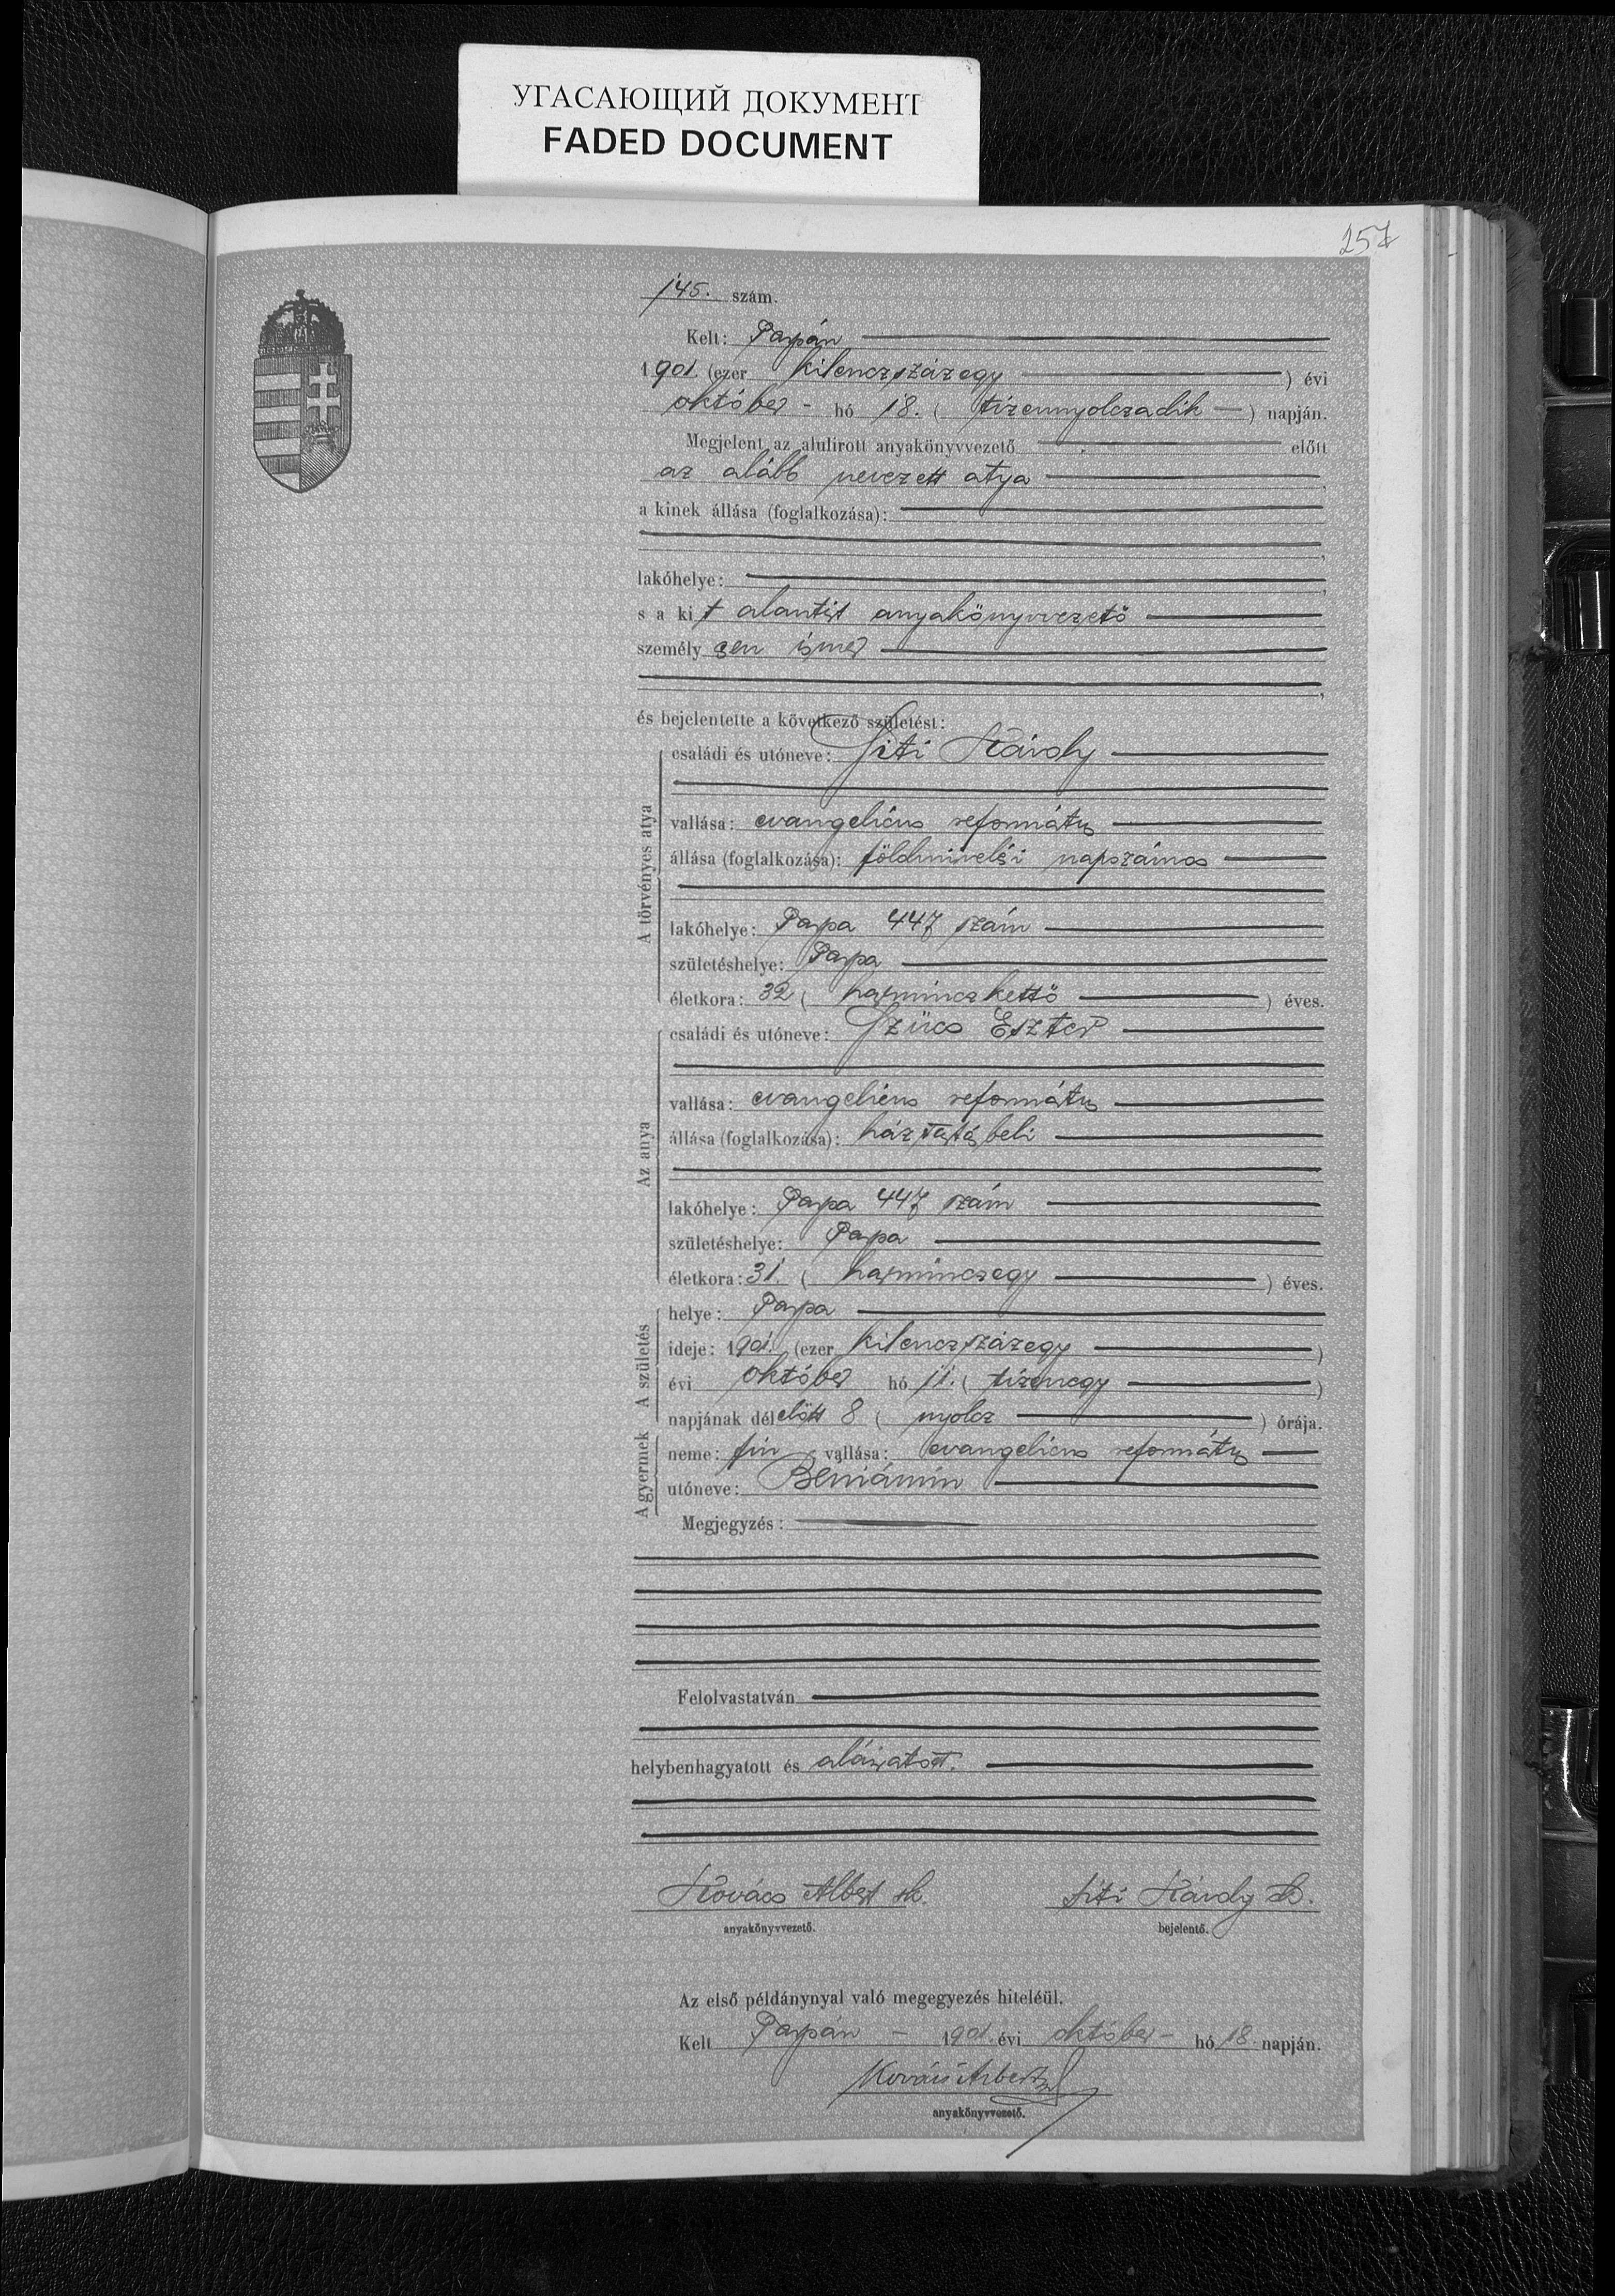 УГАСАЮЩИЙ ДОКУМЕНТ
FADED DOCUMENT
257
145. szám.
Kelt: Papán
1901. (ezer kilenczszázegy) évi
október - hó 18. ( tizennyolczadik — ) napján.
Megjelent az alulirott anyakönyvvezető előtt
az alább nevezett atya
a kinek állása (foglalkozása):
lakóhelye:
s a kit alantirt anyakönyvvezető
személyesen ismer
és bejelentette a következő születést:
A törvényes atya
családi és utóneve: Siti Károly
vallása: evangelicus református
állása (foglalkozása): földmivelési napszámos
lakóhelye: Papa 447 szám
születéshelye: Papa
életkora: 32 ( harminczkettő ) éves.
Az anya
családi és utóneve: Szücs Eszter
vallása: evangelicus református
állása (foglalkozása): háztartásbeli
lakóhelye: Papa 447 szám
születéshelye: Papa
életkora: 31. ( harminczegy ) éves.
A születés
helye: Papa
ideje: 1901. (ezer kilenczszázegy )
évi október hó 11. ( tizenegy )
napjának délelőtt 8 ( nyolcz ) órája.
A gyermek
neme: fiu, vallása: evangelicus református
utóneve: Beniámin
Megjegyzés:
Felolvastatván
helybenhagyatott és aláiratott.
Kovács Albert sk. Siti Károly sk.
anyakönyvvezető. bejelentő.
Az első példánynyal való megegyezés hiteléül.
Kelt Papán – 1901. évi október – hó 18 napján.
Kovács Albert
anyakönyvvezető.